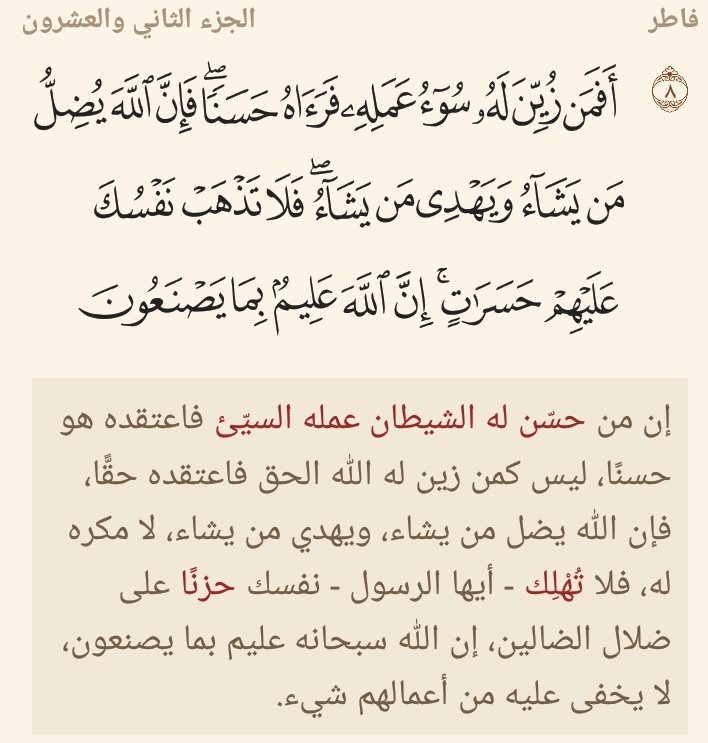 فاطر الجزء الثاني والعشرون
٨ أَفَمَن زُيِّنَ لَهُۥ سُوٓءُ عَمَلِهِۦ فَرَءَاهُ حَسَنٗاۖ فَإِنَّ ٱللَّهَ يُضِلُّ
مَن يَشَآءُ وَيَهۡدِي مَن يَشَآءُۖ فَلَا تَذۡهَبۡ نَفۡسُكَ
عَلَيۡهِمۡ حَسَرَٰتٍۚ إِنَّ ٱللَّهَ عَلِيمُۢ بِمَا يَصۡنَعُونَ
إن من حسّن له الشيطان عمله السيّئ فاعتقده هو
حسنًا، ليس كمن زين له الله الحق فاعتقده حقًّا،
فإن الله يضل من يشاء، ويهدي من يشاء، لا مكره
له، فلا تُهْلِك - أيها الرسول - نفسك حزنًا على
ضلال الضالين، إن الله سبحانه عليم بما يصنعون،
لا يخفى عليه من أعمالهم شيء.